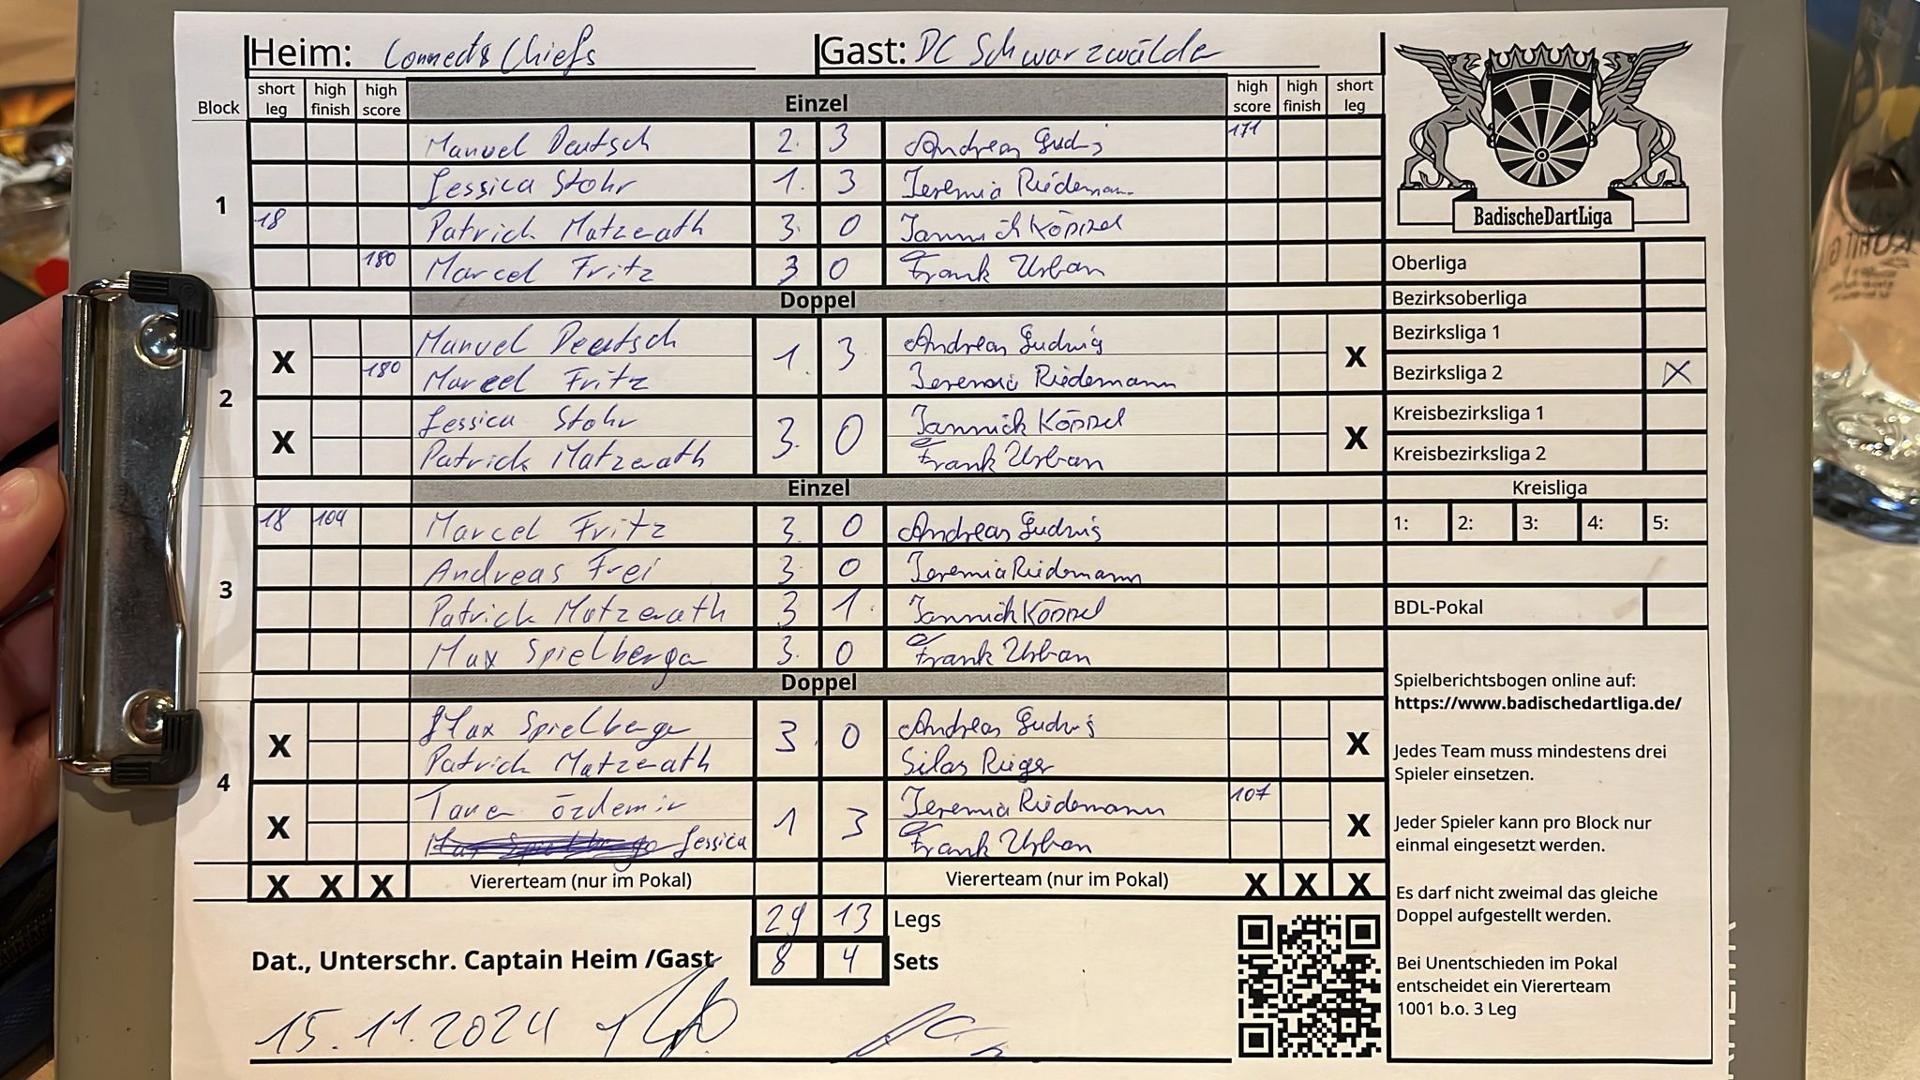 Heim: Connects Chiefs Gast: DC Schwarzwälder
Block short leg high finish high score Einzel high score high finish short leg
1
Manuel Deutsch 2. 3 Andreas Ludwig 171
Jessica Stohr 1. 3 Jeremia Riedemann
18 Patrick Matzerath 3. 0 Jannick Köppel
180 Marcel Fritz 3 0 Frank Urban
Doppel
2
X Manuel Deutsch 1. 3 Andreas Ludwig X
180 Marcel Fritz Jeremia Riedemann
X Jessica Stohr 3. 0 Jannick Köppel X
Patrick Matzerath Frank Urban
Einzel
3
18 104 Marcel Fritz 3. 0 Andreas Ludwig
Andreas Frei 3. 0 Jeremia Riedemann
Patrick Matzerath 3 1. Jannick Köppel
Max Spielberger 3. 0 Frank Urban
Doppel
4
X Max Spielberger 3. 0 Andreas Ludwig X
Patrick Matzerath Silas Rieger
X Taner Özdemir 1 3 Jeremia Riedemann 107 X
Jessica Frank Urban
X X X Viererteam (nur im Pokal) Viererteam (nur im Pokal) X X X
29 13 Legs
Dat., Unterschr. Captain Heim /Gast 8 4 Sets
15.11.2024
BadischeDartLiga
Oberliga
Bezirksoberliga
Bezirksliga 1
Bezirksliga 2 X
Kreisbezirksliga 1
Kreisbezirksliga 2
Kreisliga
1: 2: 3: 4: 5:
BDL-Pokal
Spielberichtsbogen online auf:
https://www.badischedartliga.de/
Jedes Team muss mindestens drei
Spieler einsetzen.
Jeder Spieler kann pro Block nur
einmal eingesetzt werden.
Es darf nicht zweimal das gleiche
Doppel aufgestellt werden.
Bei Unentschieden im Pokal
entscheidet ein Viererteam
1001 b.o. 3 Leg